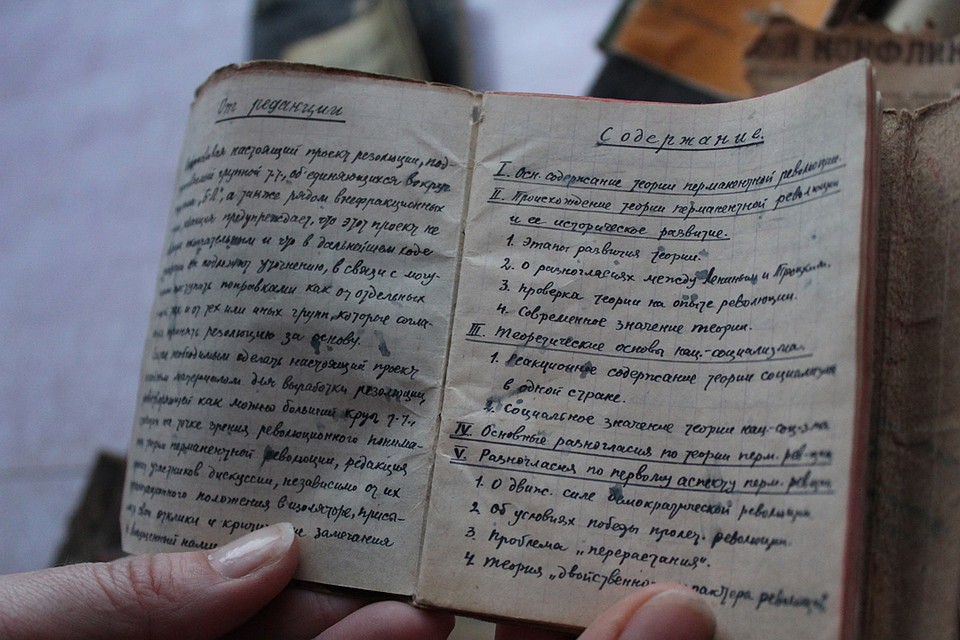 От редакции
настоящий проект резолюции, под-
группой т-т, об'единяющихся вокруг
а также рядом внефракционных
предупреждает, что этот проект не
и что в дальнейшем ходе
подлежит уточнению, в связи с могу-
поправками как от отдельных
и от тех или иных групп, которые согла-
принять резолюцию за основу.
необходимым сделать настоящий проект
материалом для выработки резолюции,
как можно больший круг т-т,
на точке зрения революционного понима-
теории перманентной революции, редакция
участников дискуссии, независимо от их
положения в изоляторе, присы-
отклики и замечания
Содержание.
I. Осн. содержание теории перманентной революции.
II. Происхождение теории перманентной революции
и ее историческое развитие.
1. Этапы развития теории.
2. О разногласиях между Лениным и Троцким.
3. Проверка теории на опыте революции.
4. Современное значение теории.
III. Теоретические основы нац.-социализма.
1. Реакционное содержание теории социализма
в одной стране.
2. Социальное значение теории нац-соц-зма
IV. Основные разногласия по теории перм. рев-ции
V. Разногласия по первому аспекту перм. рев-ции
1. О движ. силе демократической революции
2 Об условиях победы пролет. революции.
3. Проблема „перерастания".
4 Теория „двойственно революции
й конфлик